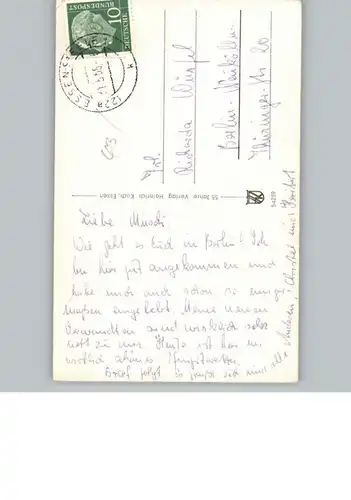 10
DEUTSCHE
BUNDESPOST
ESSEN
Frl.
Richarda Würfel
Berlin-Neukölln
Thüringer-Str 20
55 Jahre Verlag Heinrich Koch, Essen
54259
Liebe
Wie geht es Euch in Berlin? Ich
bin hier gut angekommen und
habe mich auch schon so einiger
maßen eingelebt. Meine neuen
Verwandten sind wirklich sehr
nett zu mir. Heute ist hier ein
wirklich schönes Pfingstwetter.
Brief folgt. Es grüßt Dich und alle